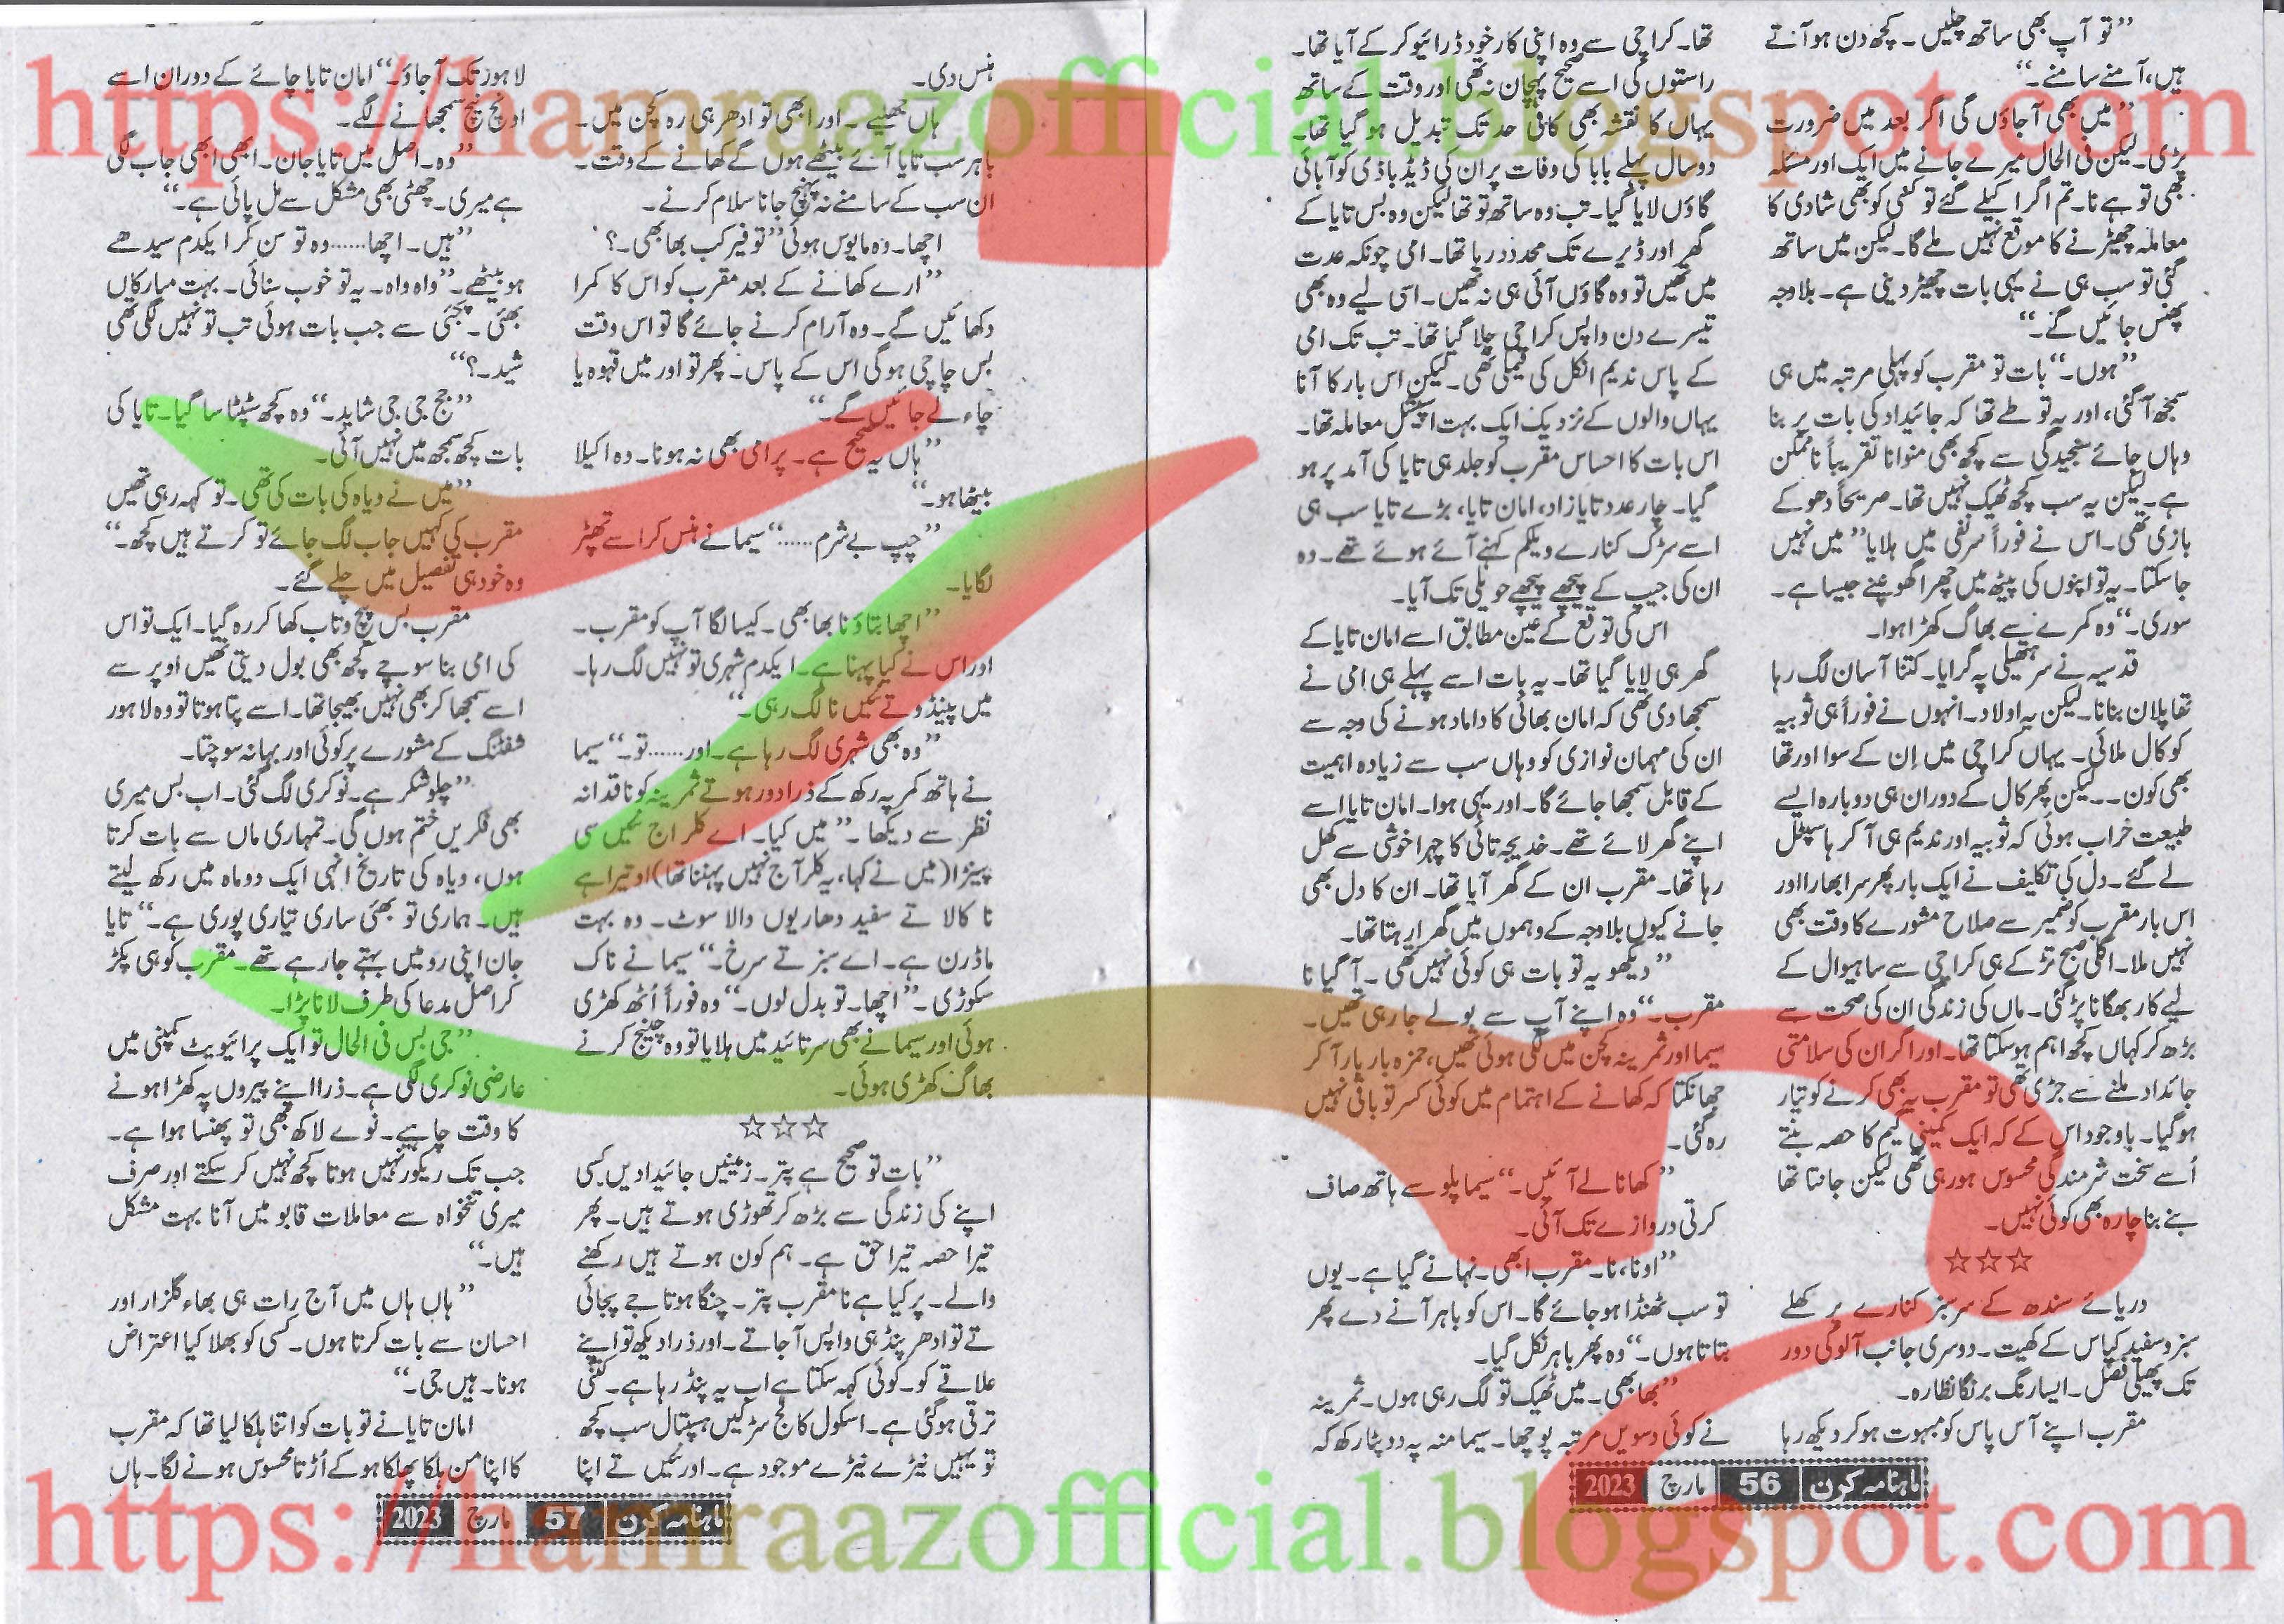 ’’تو آپ بھی ساتھ چلیں۔ کچھ دن ہو آتے
ہیں، آمنے سامنے۔‘‘
’’میں بھی آجاؤں گی اگر بعد میں ضرورت
پڑی۔ لیکن فی الحال میرے جانے میں ایک اور مسئلہ
بھی تو ہے نا۔ تم اکیلے گئے تو کسی کو بھی شادی کا
معاملہ چھیڑنے کا موقع نہیں ملے گا۔ لیکن میں ساتھ
گئی تو سب ہی نے یہی بات چھیڑ دینی ہے۔ بلاوجہ
پھنس جائیں گے۔‘‘
’’ہوں۔‘‘ بات تو مقرب کو پہلی مرتبہ میں ہی
سمجھ آ گئی، اور یہ تو طے تھا کہ جائیداد کی بات پر بنا
وہاں جائے سنجیدگی سے کچھ بھی منوانا تقریباً ناممکن
ہے۔ لیکن یہ سب کچھ ٹھیک نہیں تھا۔ صریحاً دھوکے
بازی تھی۔ اس نے فوراً سر نفی میں ہلایا ’’میں نہیں
جا سکتا۔ یہ تو اپنوں کی پیٹھ میں چھرا گھونپنے جیسا ہے۔
سوری۔‘‘ وہ کمرے سے بھاگ کھڑا ہوا۔
قدسیہ نے سر ہتھیلی پہ گرایا۔ کتنا آسان لگ رہا
تھا پلان بنانا۔ لیکن یہ اولاد۔ انہوں نے فوراً ہی ثوبیہ
کو کال ملائی۔ یہاں کراچی میں اِن کے سوا اور تھا
بھی کون۔۔ لیکن پھر کال کے دوران ہی دوبارہ ایسے
طبیعت خراب ہوئی کہ ثوبیہ اور ندیم ہی آ کر ہاسپٹل
لے گئے۔ دل کی تکلیف نے ایک بار پھر سر ابھارا اور
اس بار مقرب کو ضمیر سے صلاح مشورے کا وقت بھی
نہیں ملا۔ اگلی صبح تڑکے ہی کراچی سے ساہیوال کے
لیے کار بھگانا پڑ گئی۔ ماں کی زندگی ان کی صحت سے
بڑھ کر کہاں کچھ اہم ہو سکتا تھا۔ اور اگر ان کی سلامتی
جائداد ملنے سے جڑی تھی تو مقرب یہ بھی کرنے کو تیار
ہو گیا۔ باوجود اس کے کہ ایک کمینی گیم کا حصہ بنتے
اُسے سخت شرمندگی محسوس ہو رہی تھی لیکن جانتا تھا
بنے بنا چارہ بھی کوئی نہیں۔
☆☆☆
دریائے سندھ کے سرسبز کنارے پر کھلے
سبز و سفید کپاس کے کھیت۔ دوسری جانب آلو کی دور
تک پھیلی فصل۔ ایسا رنگ برنگا نظارہ۔
مقرب اپنے آس پاس کو مبہوت ہو کر دیکھ رہا
تھا۔ کراچی سے وہ اپنی کار خود ڈرائیو کر کے آیا تھا۔
راستوں کی اسے صحیح پہچان نہ تھی اور وقت کے ساتھ
یہاں کا نقشہ بھی کافی حد تک تبدیل ہو گیا تھا۔
دو سال پہلے بابا کی وفات پر ان کی ڈیڈ باڈی کو آبائی
گاؤں لایا گیا۔ تب وہ ساتھ تو تھا لیکن وہ بس تایا کے
گھر اور ڈیرے تک محدود رہا تھا۔ امی چونکہ عدت
میں تھیں تو وہ گاؤں آئی ہی نہ تھیں۔ اسی لیے وہ بھی
تیسرے دن واپس کراچی چلا گیا تھا۔ تب تک امی
کے پاس ندیم انکل کی فیملی تھی۔ لیکن اس بار کا آنا
یہاں والوں کے نزدیک ایک بہت اسپیشل معاملہ تھا۔
اس بات کا احساس مقرب کو جلد ہی تایا کی آمد پر ہو
گیا۔ چار عدد تایا زاد، امان تایا، بڑے تایا سب ہی
اسے سڑک کنارے ویلکم کہنے آئے ہوئے تھے۔ وہ
ان کی جیپ کے پیچھے پیچھے حویلی تک آیا۔
اس کی توقع کے عین مطابق اسے امان تایا کے
گھر ہی لایا گیا تھا۔ یہ بات اسے پہلے ہی امی نے
سمجھا دی تھی کہ امان بھائی کا داماد ہونے کی وجہ سے
ان کی مہمان نوازی کو وہاں سب سے زیادہ اہمیت
کے قابل سمجھا جائے گا۔ اور یہی ہوا۔ امان تایا اسے
اپنے گھر لائے تھے۔ خدیجہ تائی کا چہرا خوشی سے کھل
رہا تھا۔ مقرب ان کے گھر آیا تھا۔ ان کا دل بھی
جانے کیوں بلاوجہ کے وہموں میں گھرا رہتا تھا۔
’’دیکھو یہ تو بات ہی کوئی نہیں تھی۔ آ گیا نا
مقرب۔‘‘ وہ اپنے آپ سے بولے جا رہی تھیں۔
سیما اور ثمرینہ کچن میں لگی ہوئی تھیں، حمزہ بار بار آ کر
جھانکتا کہ کھانے کے اہتمام میں کوئی کسر تو باقی نہیں
رہ گئی۔
’’کھانا لے آئیں۔‘‘ سیما پلو سے ہاتھ صاف
کرتی دروازے تک آئی۔
’’اونا، نا۔ مقرب ابھی۔ نہانے گیا ہے۔ یوں
تو سب ٹھنڈا ہو جائے گا۔ اس کو باہر آنے دے پھر
بتاتا ہوں۔‘‘ وہ پھر باہر نکل گیا۔
’’بھابھی۔ میں ٹھیک تو لگ رہی ہوں۔ ثمرینہ
نے کوئی دسویں مرتبہ پوچھا۔ سیما منہ پہ دوپٹا رکھ کہ
ماہنامہ کرن 56 مارچ 2023
ہنس دی۔
ہاں جھلیے۔ اور ابھی تو ادھر ہی رہ کچن میں۔
باہر سب تایا آئے بیٹھے ہوں گے کھانے کے وقت۔
ان سب کے سامنے نہ پہنچ جانا سلام کرنے۔
اچھا۔ وہ مایوس ہوئی ’’تو فیر کب بھابھی۔؟‘
’’ارے کھانے کے بعد مقرب کو اس کا کمرا
دکھائیں گے۔ وہ آرام کرنے جائے گا تو اس وقت
بس چاچی ہو گی اس کے پاس۔ پھر تو اور میں قہوہ یا
چاء لے جائیں گے۔‘‘
’’ہاں یہ صحیح ہے۔ پر امی بھی نہ ہونا۔ وہ اکیلا
بیٹھا ہو۔‘‘
’’چپ بے شرم......‘‘ سیما نے ہنس کر اسے تھپڑ
لگایا۔
’’اچھا بتاؤ نا بھابھی۔ کیسا لگا آپ کو مقرب۔
اور اس نے کیا پہنا ہے۔ ایکدم شہری تو نہیں لگ رہا۔
میں پینڈو تے نئیں نا لگ رہی۔‘‘
’’وہ بھی شہری لگ رہا ہے۔ اور......تو۔‘‘ سیما
نے ہاتھ کمر پہ رکھ کے ذرا دور ہوتے ثمرینہ کو ناقدانہ
نظر سے دیکھا۔ ’’میں کیا۔ اے کلر اج نئیں سی
پینڑا (میں نے کہا، یہ کلر آج نہیں پہننا تھا) او تیرا ہے
نا کالا تے سفید دھاریوں والا سوٹ۔ وہ بہت
ماڈرن ہے۔ اے سبز تے سرخ۔‘‘ سیما نے ناک
سکوڑی۔ ’’اچھا۔ تو بدل لوں۔‘‘ وہ فوراً اُٹھ کھڑی
ہوئی اور سیما نے بھی سر تائید میں ہلایا تو وہ چینج کرنے
بھاگ کھڑی ہوئی۔
☆☆☆
’’بات تو صحیح ہے پتر۔ زمینیں جائیدادیں کسی
اپنے کی زندگی سے بڑھ کر تھوڑی ہوتے ہیں۔ پھر
تیرا حصہ تیرا حق ہے۔ ہم کون ہوتے ہیں رکھنے
والے۔ پر کیا ہے نا مقرب پتر۔ چنگا ہوتا جے بچائی
تے تو ادھر پنڈ ہی واپس آ جاتے۔ اور ذرا دیکھ تو اپنے
علاقے کو۔ کوئی کہہ سکتا ہے اب یہ پنڈ رہا ہے۔ کتنی
ترقی ہو گئی ہے۔ اسکول کالج سڑکیں ہسپتال سب کچھ
تو یہیں نیڑے نیڑے موجود ہے۔ اور نئیں تے اپنا
لاہور تک آجاؤ۔‘‘ امان تایا چائے کے دوران اسے
اونچ نیچ سمجھانے لگے۔
’’وہ۔ اصل میں تایا جان۔ ابھی ابھی جاب لگی
ہے میری۔ چھٹی بھی مشکل سے مل پائی ہے۔‘‘
’’ہیں۔ اچھا......وہ تو سن کر ایکدم سیدھے
ہو بیٹھے۔ ’’واہ واہ۔ یہ تو خوب سنائی۔ بہت مبارکاں
بھئی۔ بچئی سے جب بات ہوئی تب تو نہیں لگی تھی
شید۔؟‘‘
’’جج جی جی شاید۔‘‘ وہ کچھ سٹپٹا سا گیا۔ تایا کی
بات کچھ سمجھ میں نہیں آئی۔
’’میں نے ویاہ کی بات کی تھی۔ تو کہہ رہی تھیں
مقرب کی کہیں جاب لگ جائے تو کرتے ہیں کچھ۔‘‘
وہ خود ہی تفصیل میں چلے گئے۔
مقرب بس پیچ و تاب کھا کر رہ گیا۔ ایک تو اس
کی امی بنا سوچے کچھ بھی بول دیتی تھیں اوپر سے
اسے سمجھا کر بھی نہیں بھیجا تھا۔ اسے پتا ہوتا تو وہ لاہور
شفٹنگ کے مشورے پر کوئی اور بہانہ سوچتا۔
’’چلو شکر ہے۔ نوکری لگ گئی۔ اب بس میری
بھی فکریں ختم ہوں گی۔ تمہاری ماں سے بات کرتا
ہوں، ویاہ کی تاریخ انہی ایک دو ماہ میں رکھ لیتے
ہیں۔ ہماری تو بھئی ساری تیاری پوری ہے۔‘‘ تایا
جان اپنی رو میں بہتے جا رہے تھے۔ مقرب کو ہی پکڑ
کر اصل مدعا کی طرف لانا پڑا۔
’’جی بس فی الحال تو ایک پرائیویٹ کمپنی میں
عارضی نوکری لگی ہے۔ ذرا اپنے پیروں پہ کھڑا ہونے
کا وقت چاہیے۔ نوے لاکھ بھی تو پھنسا ہوا ہے۔
جب تک ریکور نہیں ہوتا کچھ نہیں کر سکتے اور صرف
میری تنخواہ سے معاملات قابو میں آنا بہت مشکل
ہیں۔‘‘
’’ہاں ہاں میں آج رات ہی بھاء گلزار اور
احسان سے بات کرتا ہوں۔ کسی کو بھلا کیا اعتراض
ہونا۔ ہیں جی۔‘‘
امان تایا نے تو بات کو اتنا ہلکا لیا تھا کہ مقرب
کا اپنا من ہلکا پھلکا ہو کے اُڑتا محسوس ہونے لگا۔ ہاں
ماہنامہ کرن 57 مارچ 2023
https://hamraazofficial.blogspot.com
https://hamraazofficial.blogspot.com